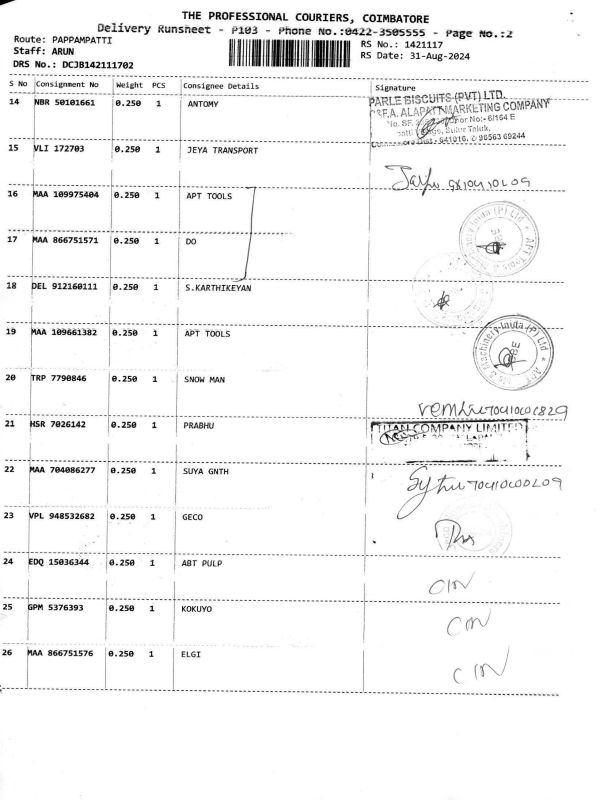 THE PROFESSIONAL COURIERS, COIMBATORE
Delivery Runsheet - P103 - Phone No.:0422-3505555 - Page No.:2
Route: PAPPAMPATTI
Staff: ARUN
DRS No.: DCJB142111702
RS No.: 1421117
RS Date: 31-Aug-2024
S No Consignment No Weight PCS Consignee Details Signature
14 NBR 50101661 0.250 1 ANTOMY
PARLE BISCUITS (PVT) LTD.
C&F.A. ALAPATT MARKETING COMPANY
Sulur Taluk,
641016. 96563 69244
15 VLI 172703 0.250 1 JEYA TRANSPORT
16 MAA 109975404 0.250 1 APT TOOLS
17 MAA 866751571 0.250 1 DO
18 DEL 912160111 0.250 1 S.KARTHIKEYAN
19 MAA 109661382 0.250 1 APT TOOLS
20 TRP 7790846 0.250 1 SNOW MAN
21 HSR 7026142 0.250 1 PRABHU
TITAN COMPANY LIMITED
22 MAA 704086277 0.250 1 SUYA GNTH
23 VPL 948532682 0.250 1 GECO
24 EDQ 15036344 0.250 1 ABT PULP
25 GPM 5376393 0.250 1 KOKUYO
26 MAA 866751576 0.250 1 ELGI